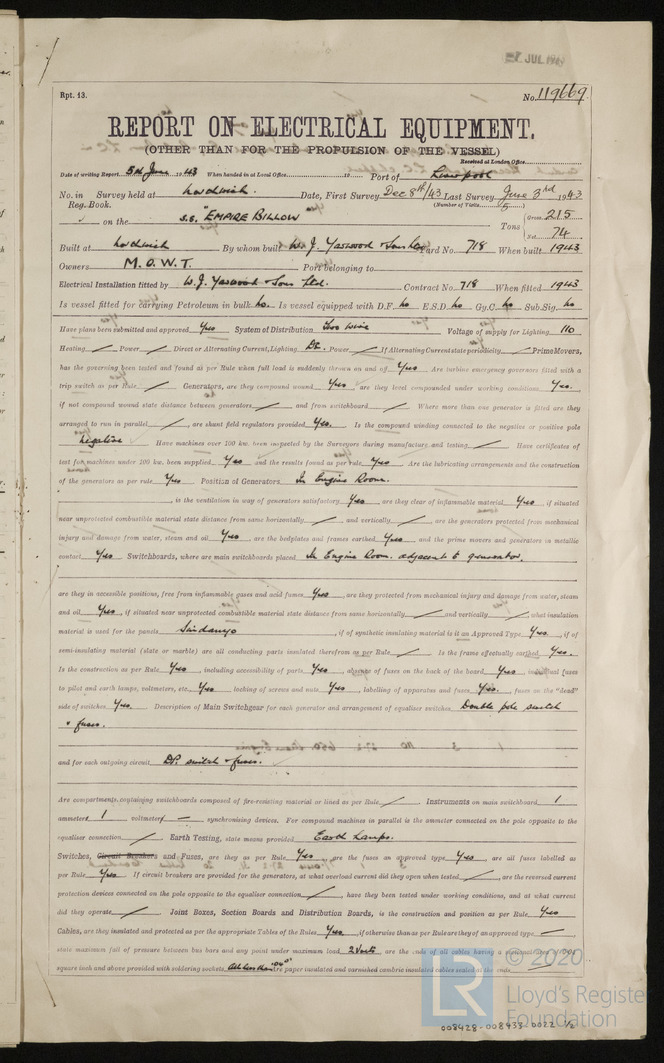 JUL 19
Rpt. 13. No. 119669
REPORT ON ELECTRICAL EQUIPMENT.
(OTHER THAN FOR THE PROPULSION OF THE VESSEL)
Received at London Office
Date of writing Report 5th June 1943 When handed in at Local Office 19 Port of Liverpool
No. in Survey held at Northwich. Date, First Survey Dec 8th/43 Last Survey June 3rd 1943
Reg. Book. (Number of Visits 5)
on the s.s. "EMPIRE BILLOW" Tons { Gross 215
Net 74
Built at Northwich By whom built W. J. Yarwood & Sons Ltd Yard No. 718 When built 1943
Owners M.O.W.T. Port belonging to
Electrical Installation fitted by W. J. Yarwood & Sons Ltd. Contract No. 718 When fitted 1943
Is vessel fitted for carrying Petroleum in bulk No. Is vessel equipped with D.F. No E.S.D. No Gy.C. No Sub.Sig. No
Have plans been submitted and approved Yes System of Distribution Two wire Voltage of supply for Lighting 110
Heating Power Direct or Alternating Current, Lighting DC. Power If Alternating Current state periodicity Prime Movers,
has the governing been tested and found as per Rule when full load is suddenly thrown on and off Yes Are turbine emergency governors fitted with a
trip switch as per Rule Generators, are they compound wound Yes are they level compounded under working conditions Yes.
if not compound wound state distance between generators and from switchboard Where more than one generator is fitted are they
arranged to run in parallel, are shunt field regulators provided Yes. Is the compound winding connected to the negative or positive pole
negative Have machines over 100 kw. been inspected by the Surveyors during manufacture and testing Have certificates of
test for machines under 100 kw. been supplied Yes and the results found as per rule Yes Are the lubricating arrangements and the construction
of the generators as per rule Yes Position of Generators In Engine Room.
, is the ventilation in way of generators satisfactory Yes are they clear of inflammable material Yes, if situated
near unprotected combustible material state distance from same horizontally and vertically, are the generators protected from mechanical
injury and damage from water, steam and oil Yes are the bedplates and frames earthed Yes and the prime movers and generators in metallic
contact Yes Switchboards, where are main switchboards placed In Engine Room. adjacent to generator.
are they in accessible positions, free from inflammable gases and acid fumes Yes, are they protected from mechanical injury and damage from water, steam
and oil Yes, if situated near unprotected combustible material state distance from same horizontally and vertically, what insulation
material is used for the panels Sindanyo, if of synthetic insulating material is it an Approved Type Yes, if of
semi-insulating material (slate or marble) are all conducting parts insulated therefrom as per Rule Is the frame effectually earthed Yes.
Is the construction as per Rule Yes, including accessibility of parts Yes, absence of fuses on the back of the board Yes individual fuses
to pilot and earth lamps, voltmeters, etc. Yes locking of screws and nuts Yes, labelling of apparatus and fuses Yes. fuses on the "dead"
side of switches Yes. Description of Main Switchgear for each generator and arrangement of equaliser switches Double pole switch
& fuses.
and for each outgoing circuit D.P. switch & fuses.
Are compartments containing switchboards composed of fire-resisting material or lined as per Rule. Instruments on main switchboard 1
ammeters 1 voltmeters — synchronising devices. For compound machines in parallel is the ammeter connected on the pole opposite to the
equaliser connection. Earth Testing, state means provided Earth Lamps.
Switches, Circuit Breakers and Fuses, are they as per Rule Yes, are the fuses an approved type Yes, are all fuses labelled as
per Rule Yes If circuit breakers are provided for the generators, at what overload current did they open when tested, are the reversed current
protection devices connected on the pole opposite to the equaliser connection, have they been tested under working conditions, and at what current
did they operate Joint Boxes, Section Boards and Distribution Boards, is the construction and position as per Rule Yes
Cables, are they insulated and protected as per the appropriate Tables of the Rules Yes, if otherwise than as per Rule are they of an approved type —
state maximum fall of pressure between bus bars and any point under maximum load 2 Volts are the ends of all cables having a sectional area of
square inch and above provided with soldering sockets Are paper insulated and varnished cambric insulated cables sealed at the ends
© 2020
LR
Lloyd's Register
Foundation
008428-008433-0022 1/2